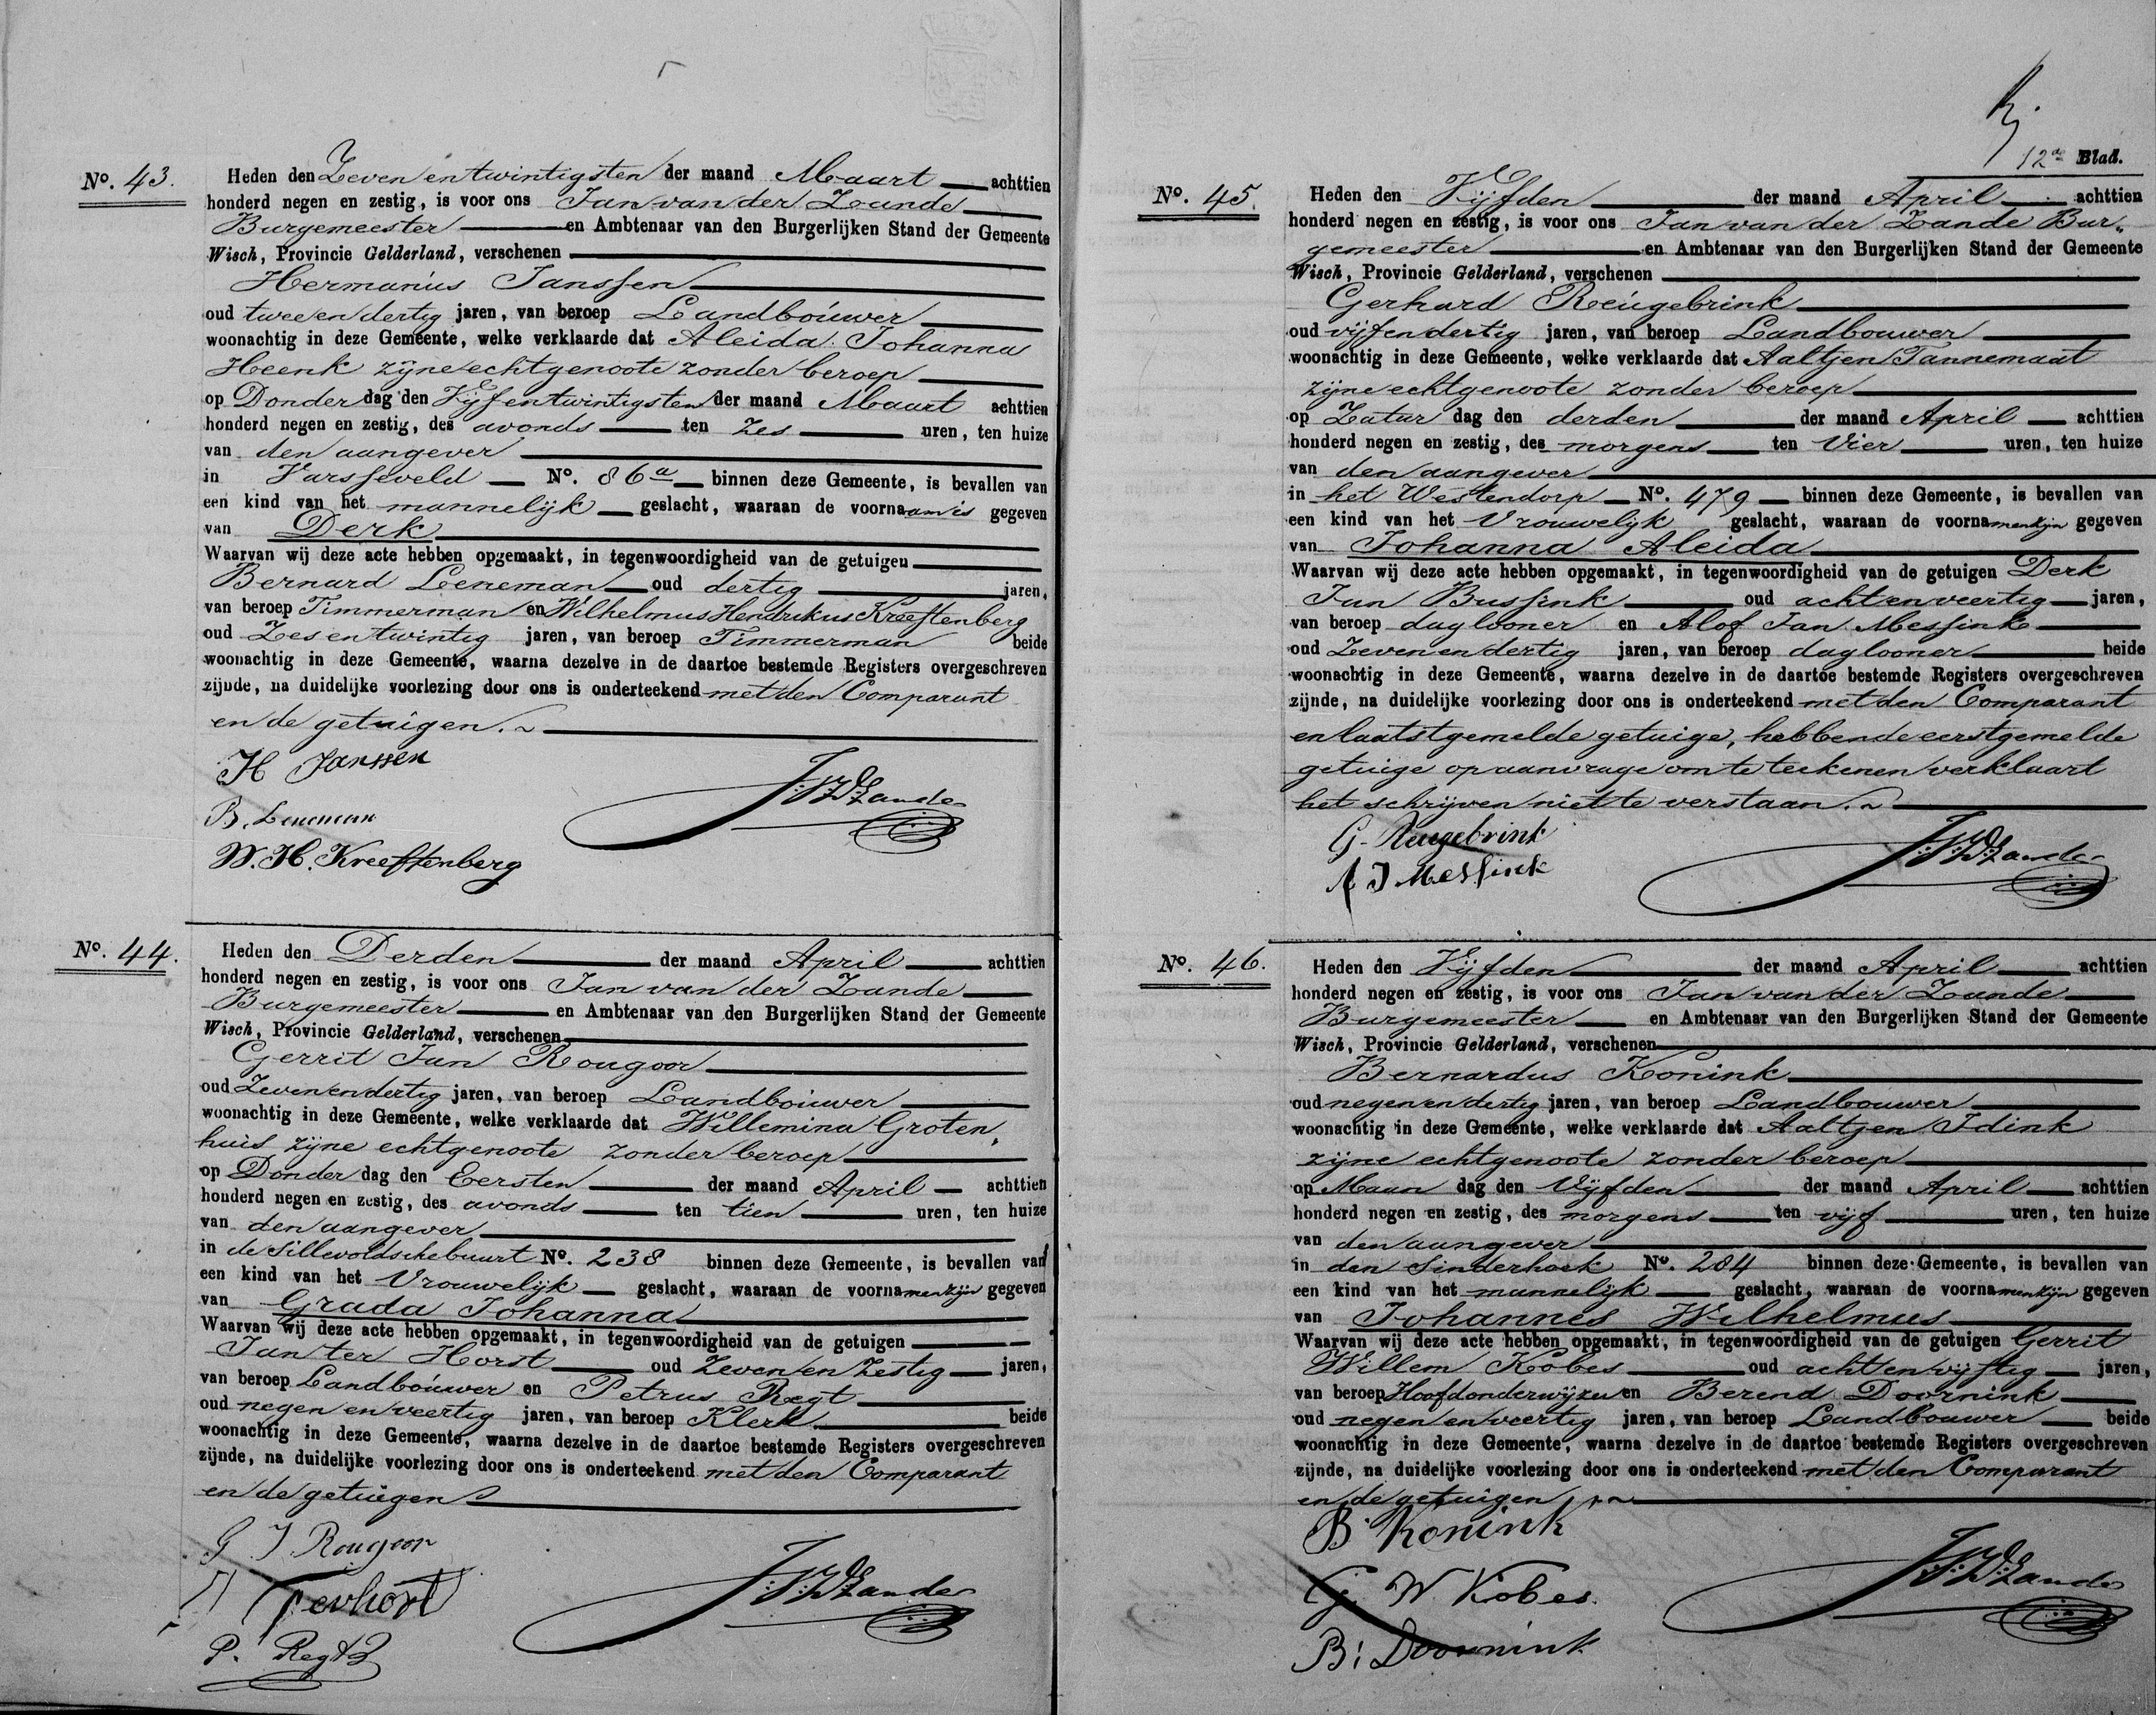 No. 43.
Heden den Zeven en twintigsten der maand Maart achttien
honderd negen en zestig, is voor ons Jan van der Zande
Burgemeester en Ambtenaar van den Burgerlijken Stand der Gemeente
Wisch, Provincie Gelderland, verschenen
Hermanus Janssen
oud twee en dertig jaren, van beroep Landbouwer
woonachtig in deze Gemeente, welke verklaarde dat Aleida Johanna
Heenk zijne echtgenoote zonder beroep
op Donder dag den Vijf en twintigsten der maand Maart achttien
honderd negen en zestig, des avonds ten zes uren, ten huize
van den aangever
in Varsseveld No. 86a binnen deze Gemeente, is bevallen van
een kind van het mannelijk geslacht, waaraan de voornaam is gegeven
van Derk
Waarvan wij deze acte hebben opgemaakt, in tegenwoordigheid van de getuigen
Bernard Leneman oud dertig jaren,
van beroep Timmerman en Wilhelmus Hendrikus Kreeftenberg
oud Zes en twintig jaren, van beroep Timmerman beide
woonachtig in deze Gemeente, waarna dezelve in de daartoe bestemde Registers overgeschreven
zijnde, na duidelijke voorlezing door ons is onderteekend met den Comparant
en de getuigen.
H Janssen
B. Leneman
W. H. Kreeftenberg
J.V.D. Zande
No. 44.
Heden den Derden der maand April achttien
honderd negen en zestig, is voor ons Jan van der Zande
Burgemeester en Ambtenaar van den Burgerlijken Stand der Gemeente
Wisch, Provincie Gelderland, verschenen
Gerrit Jan Rougoor
oud Zeven en dertig jaren, van beroep Landbouwer
woonachtig in deze Gemeente, welke verklaarde dat Willemina Groten„
huis zijne echtgenoote zonder beroep
op Donder dag den Eersten der maand April achttien
honderd negen en zestig, des avonds ten tien uren, ten huize
van den aangever
in de Sillevoldschebuurt No. 238 binnen deze Gemeente, is bevallen van
een kind van het Vrouwelijk geslacht, waaraan de voornamen zijn gegeven
van Grada Johanna
Waarvan wij deze acte hebben opgemaakt, in tegenwoordigheid van de getuigen
Jan ter Horst oud Zeven en Zestig jaren,
van beroep Landbouwer en Petrus Regt
oud negen en veertig jaren, van beroep Klerk beide
woonachtig in deze Gemeente, waarna dezelve in de daartoe bestemde Registers overgeschreven
zijnde, na duidelijke voorlezing door ons is onderteekend met den Comparant
en de getuigen
G J Rougoor
Terhorst
P. Regt
J.V.D. Zande
12de Blad.
No. 45.
Heden den Vijfden der maand April achttien
honderd negen en zestig, is voor ons Jan van der Zande Bur„
gemeester en Ambtenaar van den Burgerlijken Stand der Gemeente
Wisch, Provincie Gelderland, verschenen
Gerhard Reugebrink
oud vijf en dertig jaren, van beroep Landbouwer
woonachtig in deze Gemeente, welke verklaarde dat Aaltjen Tannemaat
zijne echtgenoote zonder beroep
op Zatur dag den derden der maand April achttien
honderd negen en zestig, des morgens ten Vier uren, ten huize
van den aangever
in het Westendorp No. 479 binnen deze Gemeente, is bevallen van
een kind van het Vrouwelijk geslacht, waaraan de voornamen zijn gegeven
van Johanna Aleida
Waarvan wij deze acte hebben opgemaakt, in tegenwoordigheid van de getuigen Derk
Jan Bussink oud acht en veertig jaren,
van beroep daglooner en Alof Jan Messink
oud Zeven en dertig jaren, van beroep daglooner beide
woonachtig in deze Gemeente, waarna dezelve in de daartoe bestemde Registers overgeschreven
zijnde, na duidelijke voorlezing door ons is onderteekend met den Comparant
en laatstgemelde getuige, hebbende eerstgemelde
getuige op aanvrage om te teekenen verklaart
het schrijven niet te verstaan.
G. Reugebrink
A J Messink
J.V.D. Zande
No. 46.
Heden den Vijfden der maand April achttien
honderd negen en zestig, is voor ons Jan van der Zande
Burgemeester en Ambtenaar van den Burgerlijken Stand der Gemeente
Wisch, Provincie Gelderland, verschenen
Bernardus Konink
oud negen en dertig jaren, van beroep Landbouwer
woonachtig in deze Gemeente, welke verklaarde dat Aaltjen Idink
zijne echtgenoote zonder beroep
op Maan dag den Vijfden der maand April achttien
honderd negen en zestig, des morgens ten vijf uren, ten huize
van den aangever
in den Sinderhoek No. 284 binnen deze Gemeente, is bevallen van
een kind van het mannelijk geslacht, waaraan de voornamen zijn gegeven
van Johannes Wilhelmus
Waarvan wij deze acte hebben opgemaakt, in tegenwoordigheid van de getuigen Gerrit
Willem Kobes oud acht en vijftig jaren,
van beroep Hoofdonderwijzer en Berend Doornink
oud negen en veertig jaren, van beroep Landbouwer beide
woonachtig in deze Gemeente, waarna dezelve in de daartoe bestemde Registers overgeschreven
zijnde, na duidelijke voorlezing door ons is onderteekend met den Comparant
en de getuigen
B. Konink
G. W Kobes.
B: Doornink
J.V.D. Zande